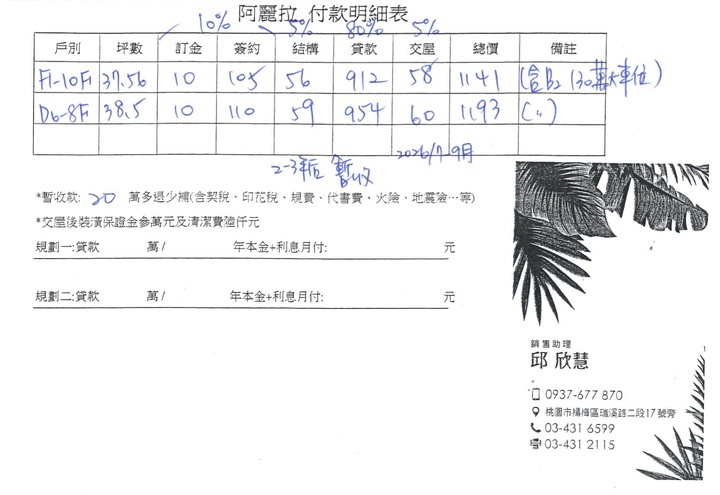 阿麗拉 付款明細表
10% 5% 80% 5%
戶別 坪數 訂金 簽約 結構 貸款 交屋 總價 備註
F1-10F 37.56 10 105 56 912 58 1141 (含B2 130萬大車位)
D6-8F 38.5 10 110 59 954 60 1193 (〃)
2-3年后 暫收 2026/7-9月
*暫收款: 20 萬多退少補(含契稅、印花稅、規費、代書費、火險、地震險…等)
*交屋後裝潢保證金參萬元及清潔費陸仟元
規劃一:貸款 萬/ 年本金+利息月付: 元
規劃二:貸款 萬/ 年本金+利息月付: 元
銷售助理
邱 欣慧
0937-677 870
桃園市楊梅區瑞溪路二段17號旁
03-431 6599
03-431 2115